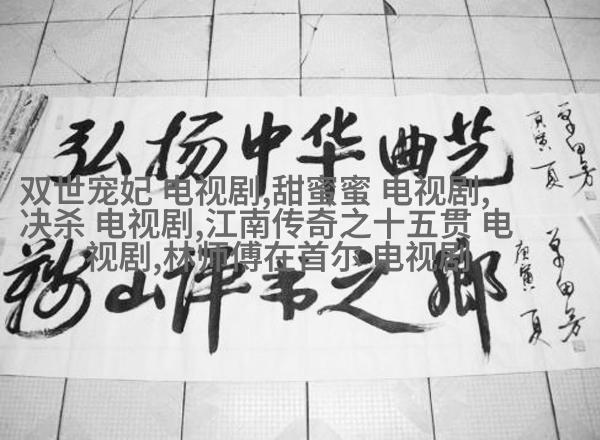 弘扬中华曲艺
庚寅 夏
单田芳
双世宠妃 电视剧,甜蜜蜜 电视剧,
决杀 电视剧,江南传奇之十五贯 电
视剧,林师傅在首尔 电视剧
鞍山评书之鄉
庚寅 夏
单田芳